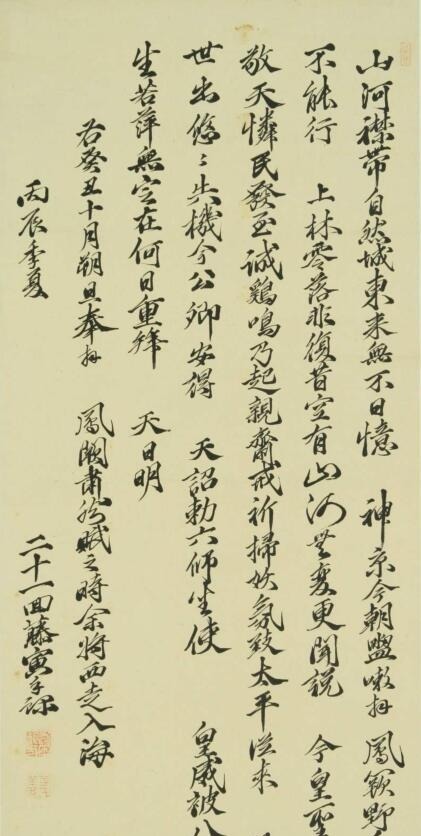 山河襟帶自然城東来無不日憶 神京今朝盥嗽拜 鳳闕野
不能行 上林零落非復昔空有山河無變更聞説 今皇聖
敬天憐民發至誠鷄鳴乃起親齋戒祈掃妖氛致太平從来
世出悠々失機今公卿安得 天詔勅六師坐使 皇威被八
生若萍無定在何日重拜 天日明
右癸丑十月朔旦奉拜 鳳闕肅然賦之時余將西走入海
丙辰季夏 二十一回藤寅手録